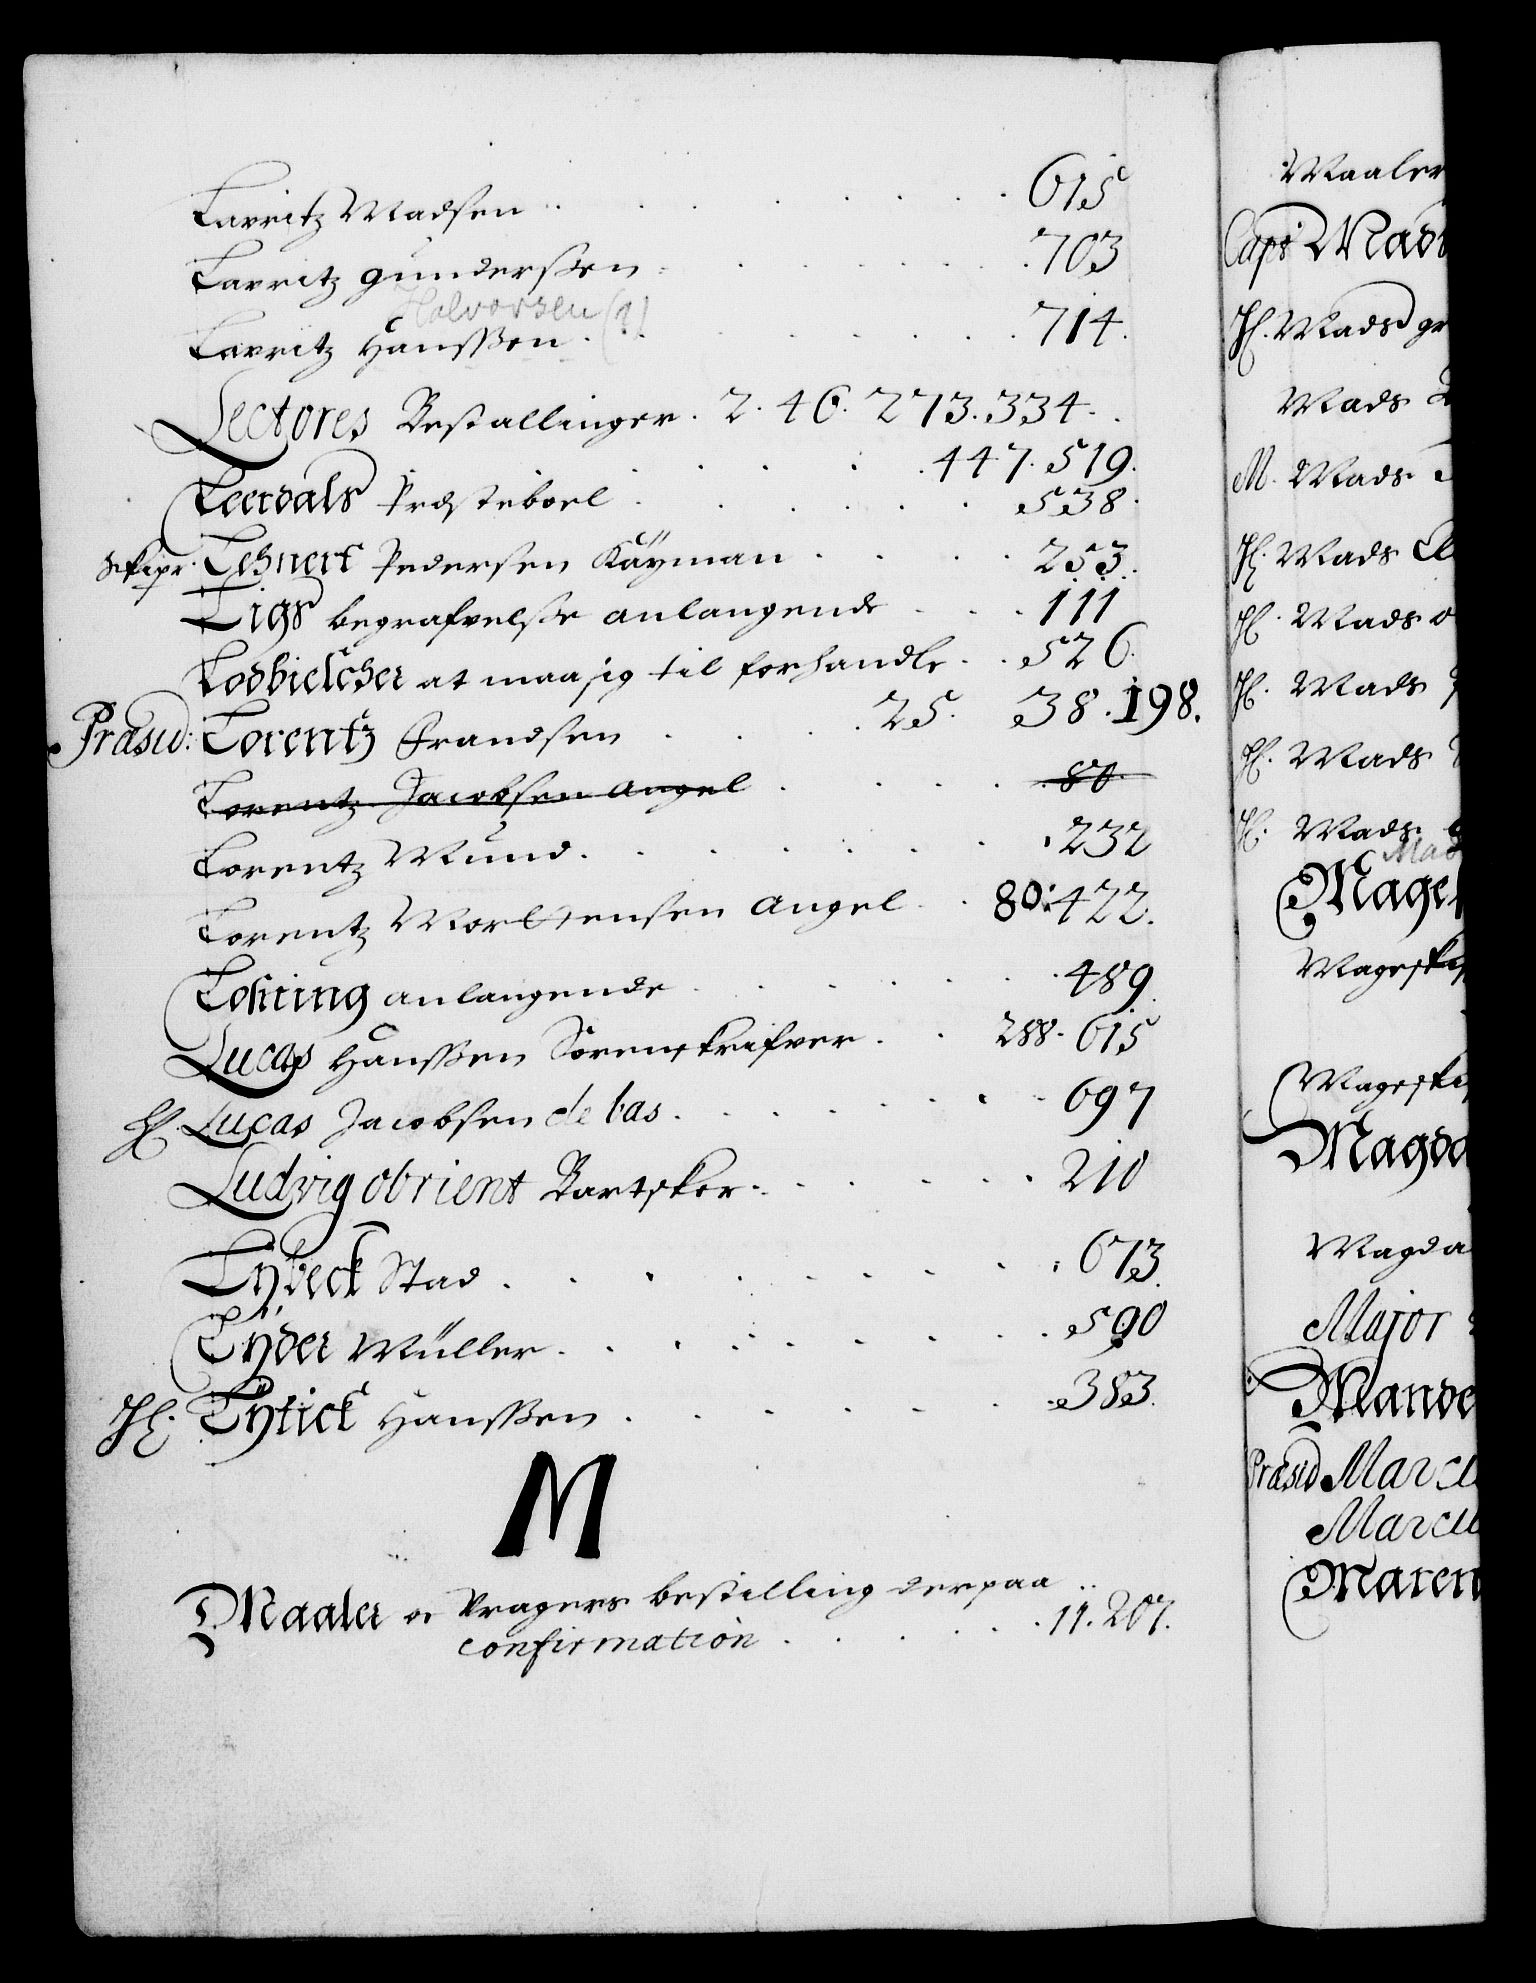 Lavritz Madsen . . . . . . . 615
Lavritz gunderssen . . . . . . 703
Halvorsen (?)
Lavritz Hanssen . . . . . 714.
Lectores Bestallinger. 2. 46. 273. 334.
447. 519.
Leerdals Præsteboel . . . . . 538.
Skipr. Lehnert Pedersen Käyman . . . . 253.
Ligs begrafvelsse anlangende . . . 111
Lodbielcher at maa sig til forhandle . . 526.
Præsid: Lorentz Frandsen . . . 25. 38. 198.
Lorentz Jacobsen Angel . . . . 80.
Lorentz Mund . . . . . . . 232
Lorentz Mortensen Angel . . 80. 422.
anlangende . . . . . 489.
Lucas Hanssen Sorenskrifver . . 288. 615
H. Lucas Jacobsen de bas . . . . . . 697
Ludvig obrient Bartsker . . . . . . 210
Lybeck Stad . . . . . . . 673.
Lyder Müller . . . . . . . 590
H. Lytick Hanssen . . . . . . 383.
M
Maaler oc Vragers bestilling derpaa
confirmation . . . . . 11. 207.
Maaler
Capt Mads
H. Mads gr
Mads
M. Mads
H. Mads
H. Mads
H. Mads
H. Mads
H. Mads
Mages
Mageski
Mageski
Magda
Magda
Major
Mande
Præsid Marcu
Marcu
Maren